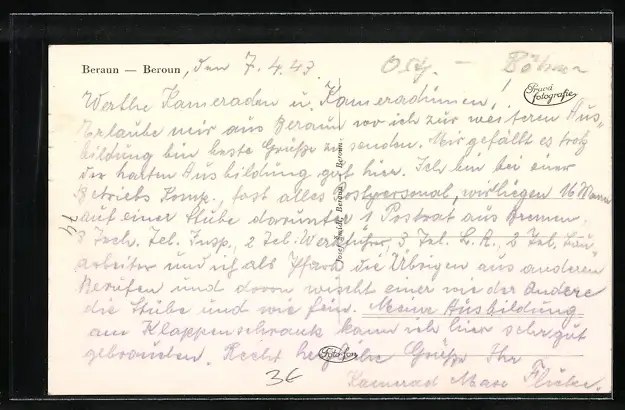 Beraun — Beroun, den 7. 4. 43. Ostf. — Böhmen
Pravá fotografie
Werthe Kameraden u. Kameradinnen!
Erlaube mir aus Beraun wo ich zur weiteren Aus-
bildung bin beste Grüße zu senden. Mir gefällt es trotz
der harten Ausbildung gut hier. Ich bin bei einer
Betriebs Komp., fast alles Postpersonal, wir liegen 16 Mann
auf einer Stube darunter 1 Postrat aus Bremen,
3 Tech. Tel. Insp., 2 Tel. Werkführer, 3 Tel. L. A., 2 Tel. Bau-
arbeiter und ich als die Übrigen aus anderen
Berufen und davon wischt einer wie der Andere
die Stube und wie fein. Meine Ausbildung
am Klappenschrank kann ich hier sehr gut
gebrauchen. Recht herzliche Grüße Ihr
Kamerad
Fotofon
36